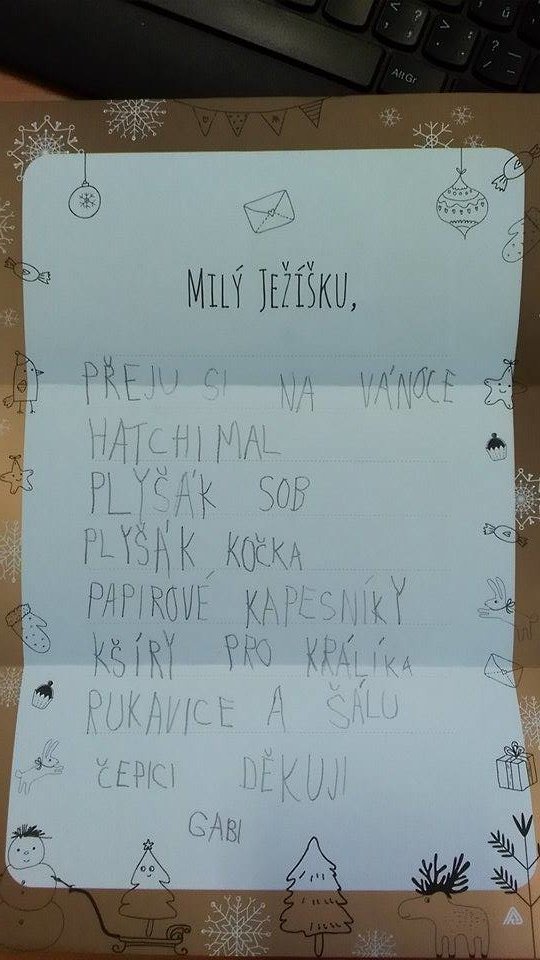 Alt Gr
MILÝ JEŽÍŠKU,
PŘEJU SI NA VÁNOCE
HATCHIMAL
PLYŠÁK SOB
PLYŠÁK KOČKA
PAPIROVÉ KAPESNÍKY
KŠÍRY PRO KRÁLÍKA
RUKAVICE A ŠÁLU
ČEPICI DĚKUJI
GABI